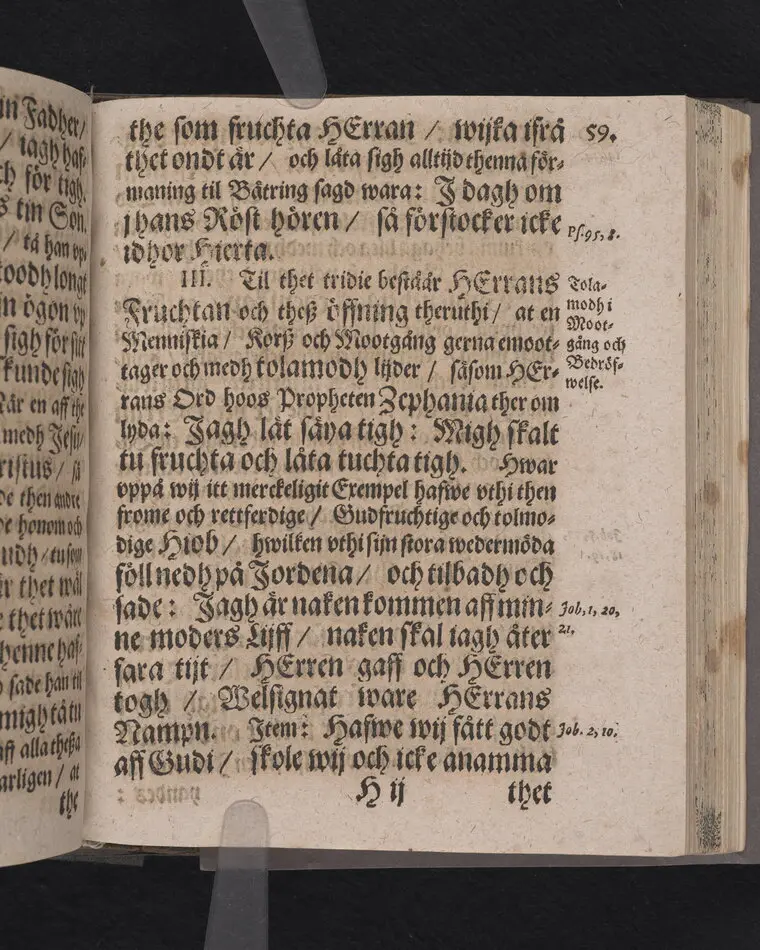 in Fadher/
/ iagh haf-
ch för tigh.
s tin Son.
/ tå han vp-
toodh longt
n ögon vp
sigh för sitt
kunde sigh
är en aff the
medh Jesu/
ristus / så
de then andre
e honom och
udh / tu som
är thet wäl
e thet wäre
henne haf-
sade han til
migh tå tu
aff alla theßa
arligen / at
the
59.
the som fruchta HErran / wijka ifrå
thet ondt är / och låta sigh alltijd thenna för-
maning til Bätring sagd wara: J dagh om
j hans Röst hören / så förstocker icke
idhor Hierta.
Ps. 95, 8.
III. Til thet tridie bestäår HErrans
Fruchtan och theß öffning theruthi / at en
Menniskia / Korß och Mootgång gerna emoot-
tager och medh tolamodh lijder / såsom HEr-
rans Ord hoos Propheten Zephania ther om
lyda: Jagh låt säya tigh: Migh skalt
tu fruchta och låta tuchta tigh. Hwar
vppå wij itt merckeligit Exempel hafwe vthi then
frome och rettferdige / Gudfruchtige och tolmo-
dige Hiob / hwilken vthi sijn stora wedermöda
föll nedh på Jordena / och tilbadh och
sade: Jagh är naken kommen aff min-
ne moders Lijff / naken skal iagh åter
fara tijt / HErren gaff och HErren
togh / Welsignat ware HErrans
Nampn. Item: Hafwe wij fått godt
aff Gudi / skole wij och icke anamma
Tola-
modh i
Moot-
gång och
Bedröf-
welse.
Job. 1, 20,
21.
Job. 2, 10.
H ij thet